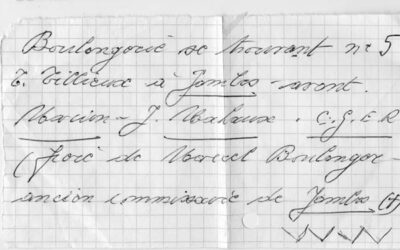 Boulongerie se trouvant n° 5
T. Tillieux à Jambes - avant.
Marion - J. Malaux. C.G.E.R
(père de Marcel Boulanger
ancien commissaire de Jambes (†)